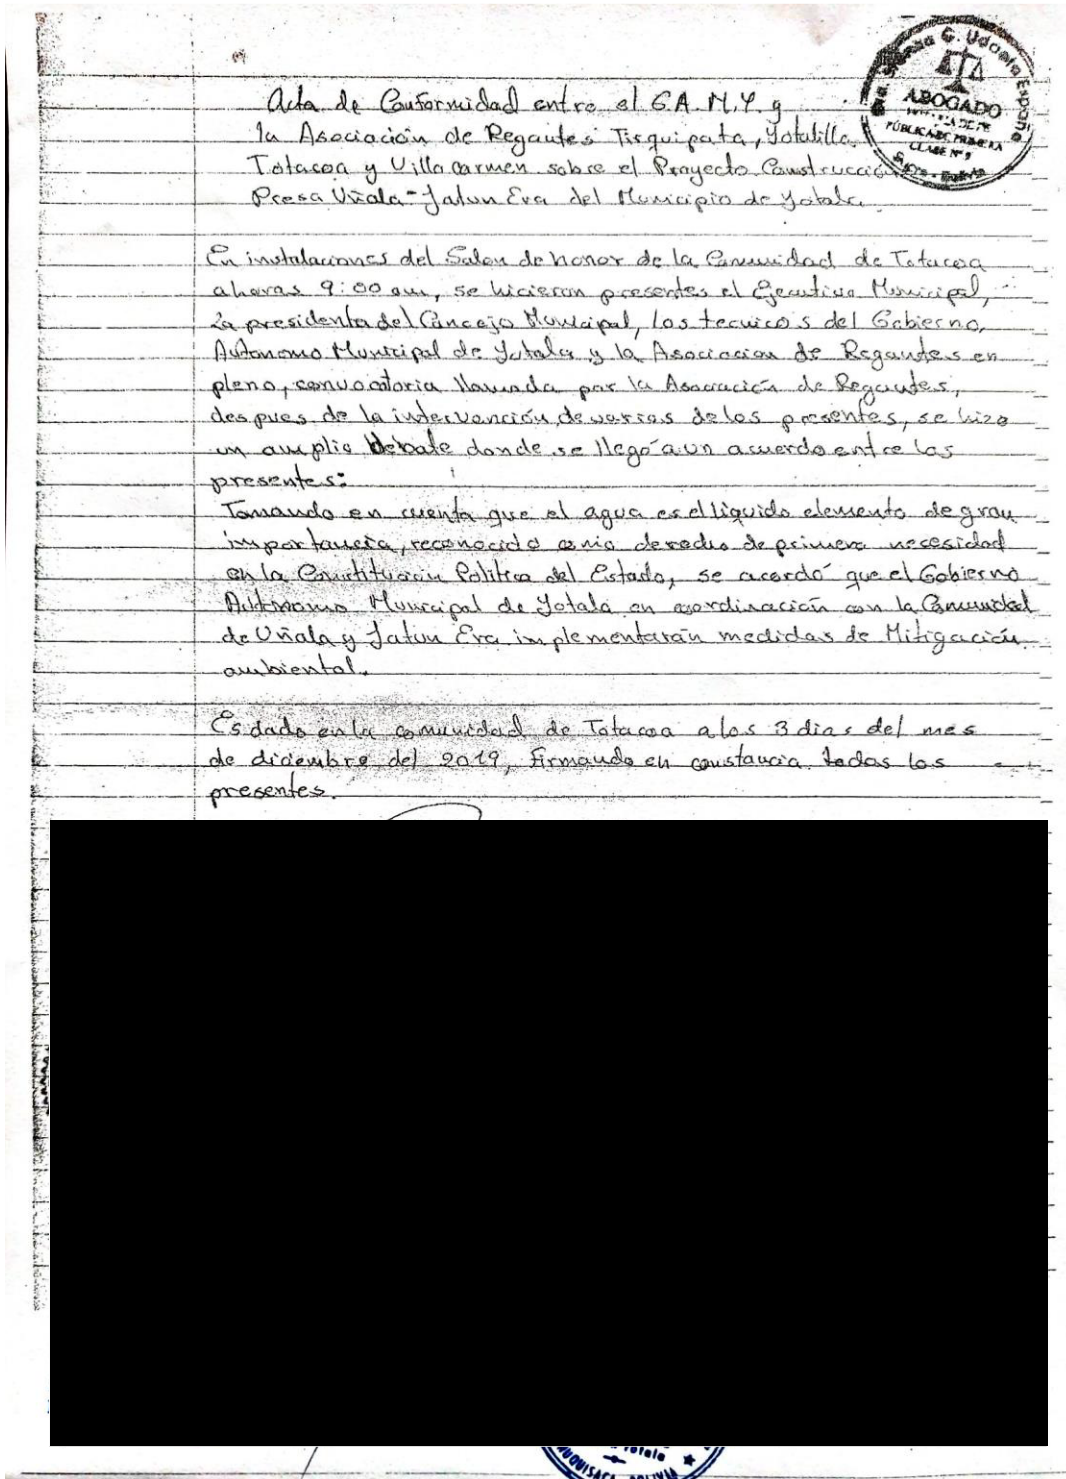 Acta de Conformidad entre el G.A.M.Y. y
la Asociación de Regantes Tirquipata, Yotalilla
Totacoa y Villa Carmen sobre el Proyecto Construcció
Presa Uñala-Jatun Era del Municipio de Yotala
G. Udaeta España
ABOGADO
PÚBLICA DE PRIMERA
CLASE Nº 9
Sucre - Bolivia
En instalaciones del Salon de honor de la Comunidad de Totacoa
ahoras 9:00 am, se hicieron presentes el Ejecutivo Municipal,
La presidenta del Concejo Municipal, los tecnicos del Gobierno,
Autonomo Municipal de Yotala y la Asociacion de Regantes en
pleno, convocatoria llamada por la Asociación de Regantes,
despues de la intervención de varios delos presentes, se hizo
un amplio debate donde se llegó a un acuerdo entre los
presentes:
Tomando en cuenta que el agua es el líquido elemento de gran
importancia, reconocido como derecho de primera necesidad
en la Constitución Política del Estado, se acordó que el Gobierno
Autonomo Municipal de Yotala en coordinación con la Comunidad
de Uñala y Jatun Era implementarán medidas de Mitigación
ambiental.
Es dado en la comunidad de Totacoa alos 3 dias del mes
de diciembre del 2019, firmando en constancia todos los
presentes.
Yotala
CHUQUISACA BOLIVIA